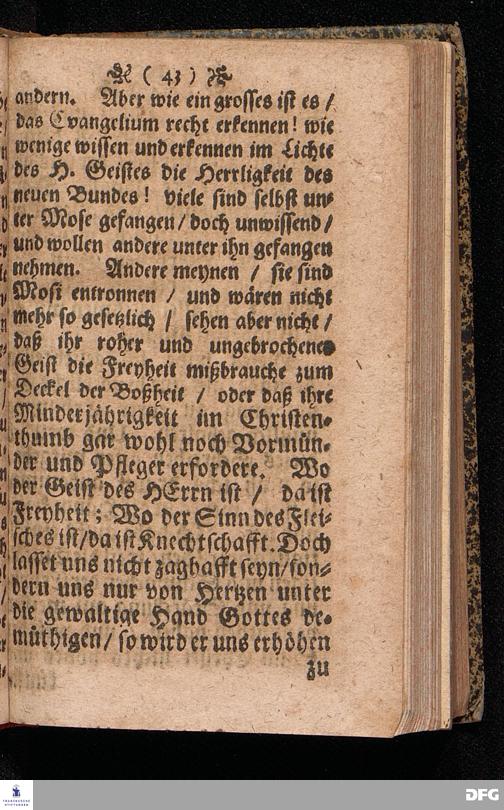 ( 43 )
andern. Aber wie ein grosses ist es /
das Evangelium recht erkennen! wie
wenige wissen und erkennen im Lichte
des H. Geistes die Herrligkeit des
neuen Bundes! viele sind selbst un-
ter Mose gefangen / doch unwissend /
und wollen andere unter ihn gefangen
nehmen. Andere meynen / sie sind
Mosi entronnen / und wären nicht
mehr so gesetzlich / sehen aber nicht /
daß ihr roher und ungebrochener
Geist die Freyheit mißbrauche zum
Deckel der Boßheit / oder daß ihre
Minderjährigkeit im Christen-
thumb gar wohl noch Vormün-
der und Pfleger erfordere. Wo
der Geist des HErrn ist / da ist
Freyheit; Wo der Sinn des Flei-
sches ist / da ist Knechtschafft. Doch
lasset uns nicht zaghafft seyn / son-
dern uns nur von Hertzen unter
die gewaltige Hand Gottes de-
müthigen / so wird er uns erhöhen
zu
FRANCKESCHE STIFTUNGEN
DFG